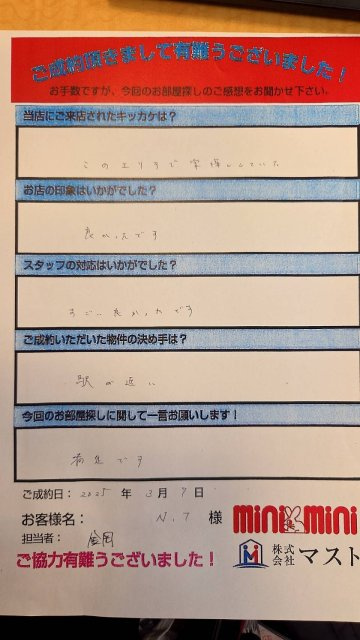 ご成約頂きまして有難うございました！
お手数ですが、今回のお部屋探しのご感想をお聞かせ下さい。
当店にご来店されたキッカケは？
このエリアで家探ししていた
お店の印象はいかがでした？
良かったです
スタッフの対応はいかがでした？
すごい良かったです
ご成約いただいた物件の決め手は？
駅が近い
今回のお部屋探しに関して一言お願いします！
満足です
ご成約日： 2025 年 3月 9日
お客様名： N.T 様
mini mini
担当者：
株式会社 マスト
ご協力有難うございました！